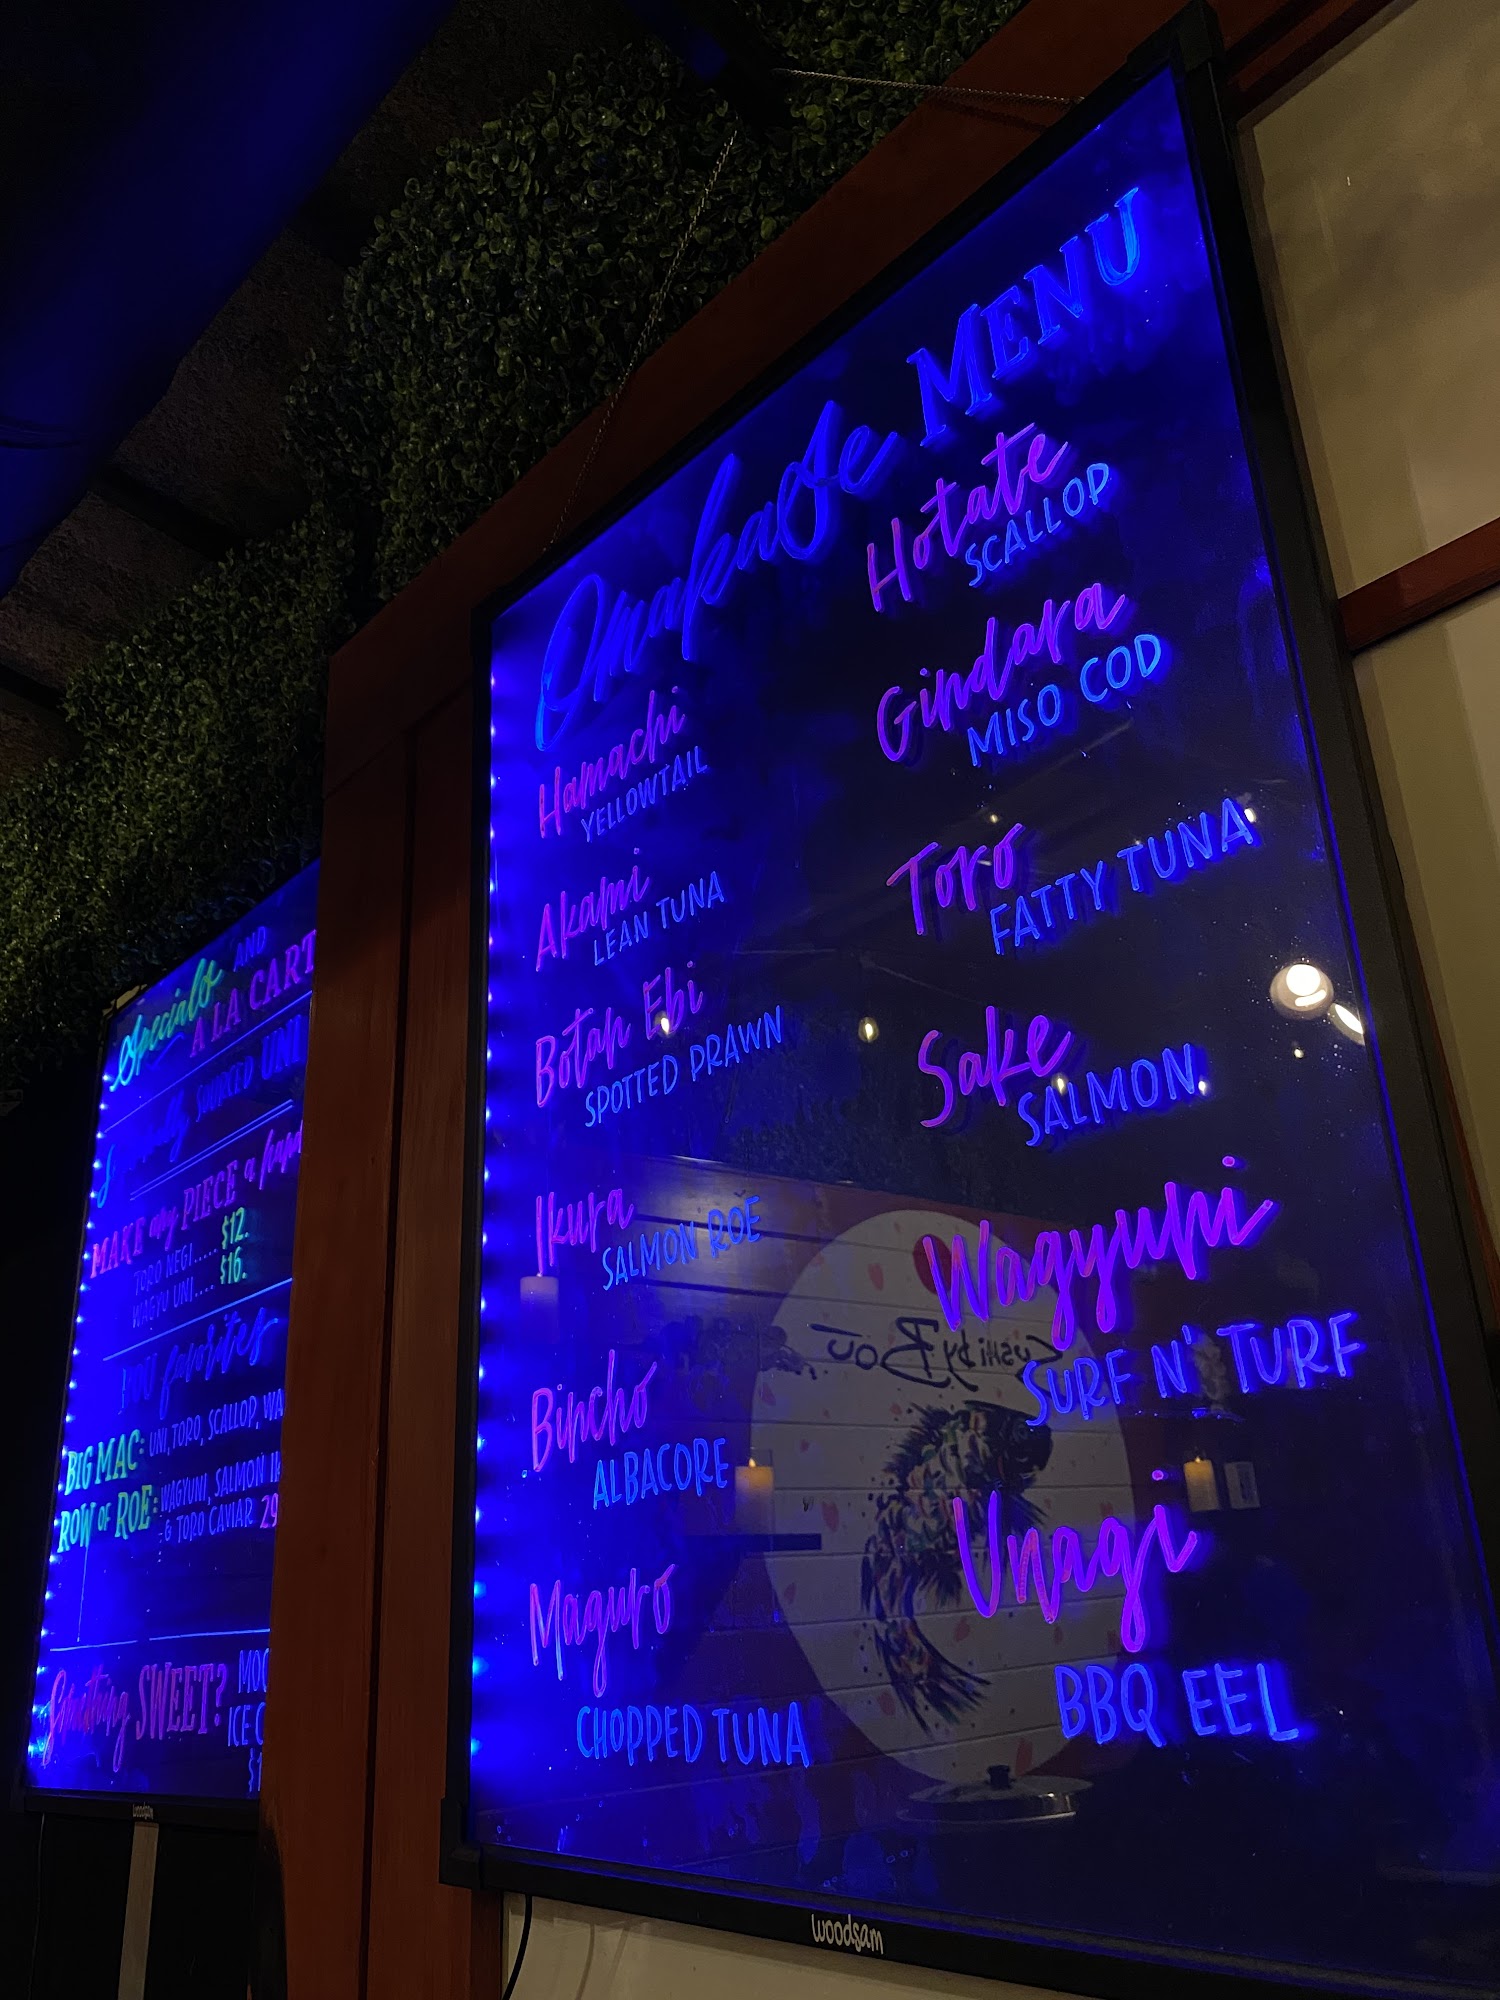 Omakase MENU
Hamachi
YELLOWTAIL
Akami
LEAN TUNA
Botan Ebi
SPOTTED PRAWN
Ikura
SALMON ROE
Bincho
ALBACORE
Maguro
CHOPPED TUNA
Hotate
SCALLOP
Gindara
MISO COD
Toro
FATTY TUNA
Sake
SALMON
Wagyuni
SURF N' TURF
Unagi
BBQ EEL
Sushi by Bou
woodsam
Specials AND
A LA CART
SOURCED UNI
MAKE any PIECE a hand
TORO NEGI..... $12.
WAGYU UNI.... $16.
favorites
BIG MAC: UNI, TORO, SCALLOP, WA
ROW OF ROE: WAGYUNI, SALMON
& TORO CAVIAR 29
Something SWEET? MOC
ICE C
$1
woodsam